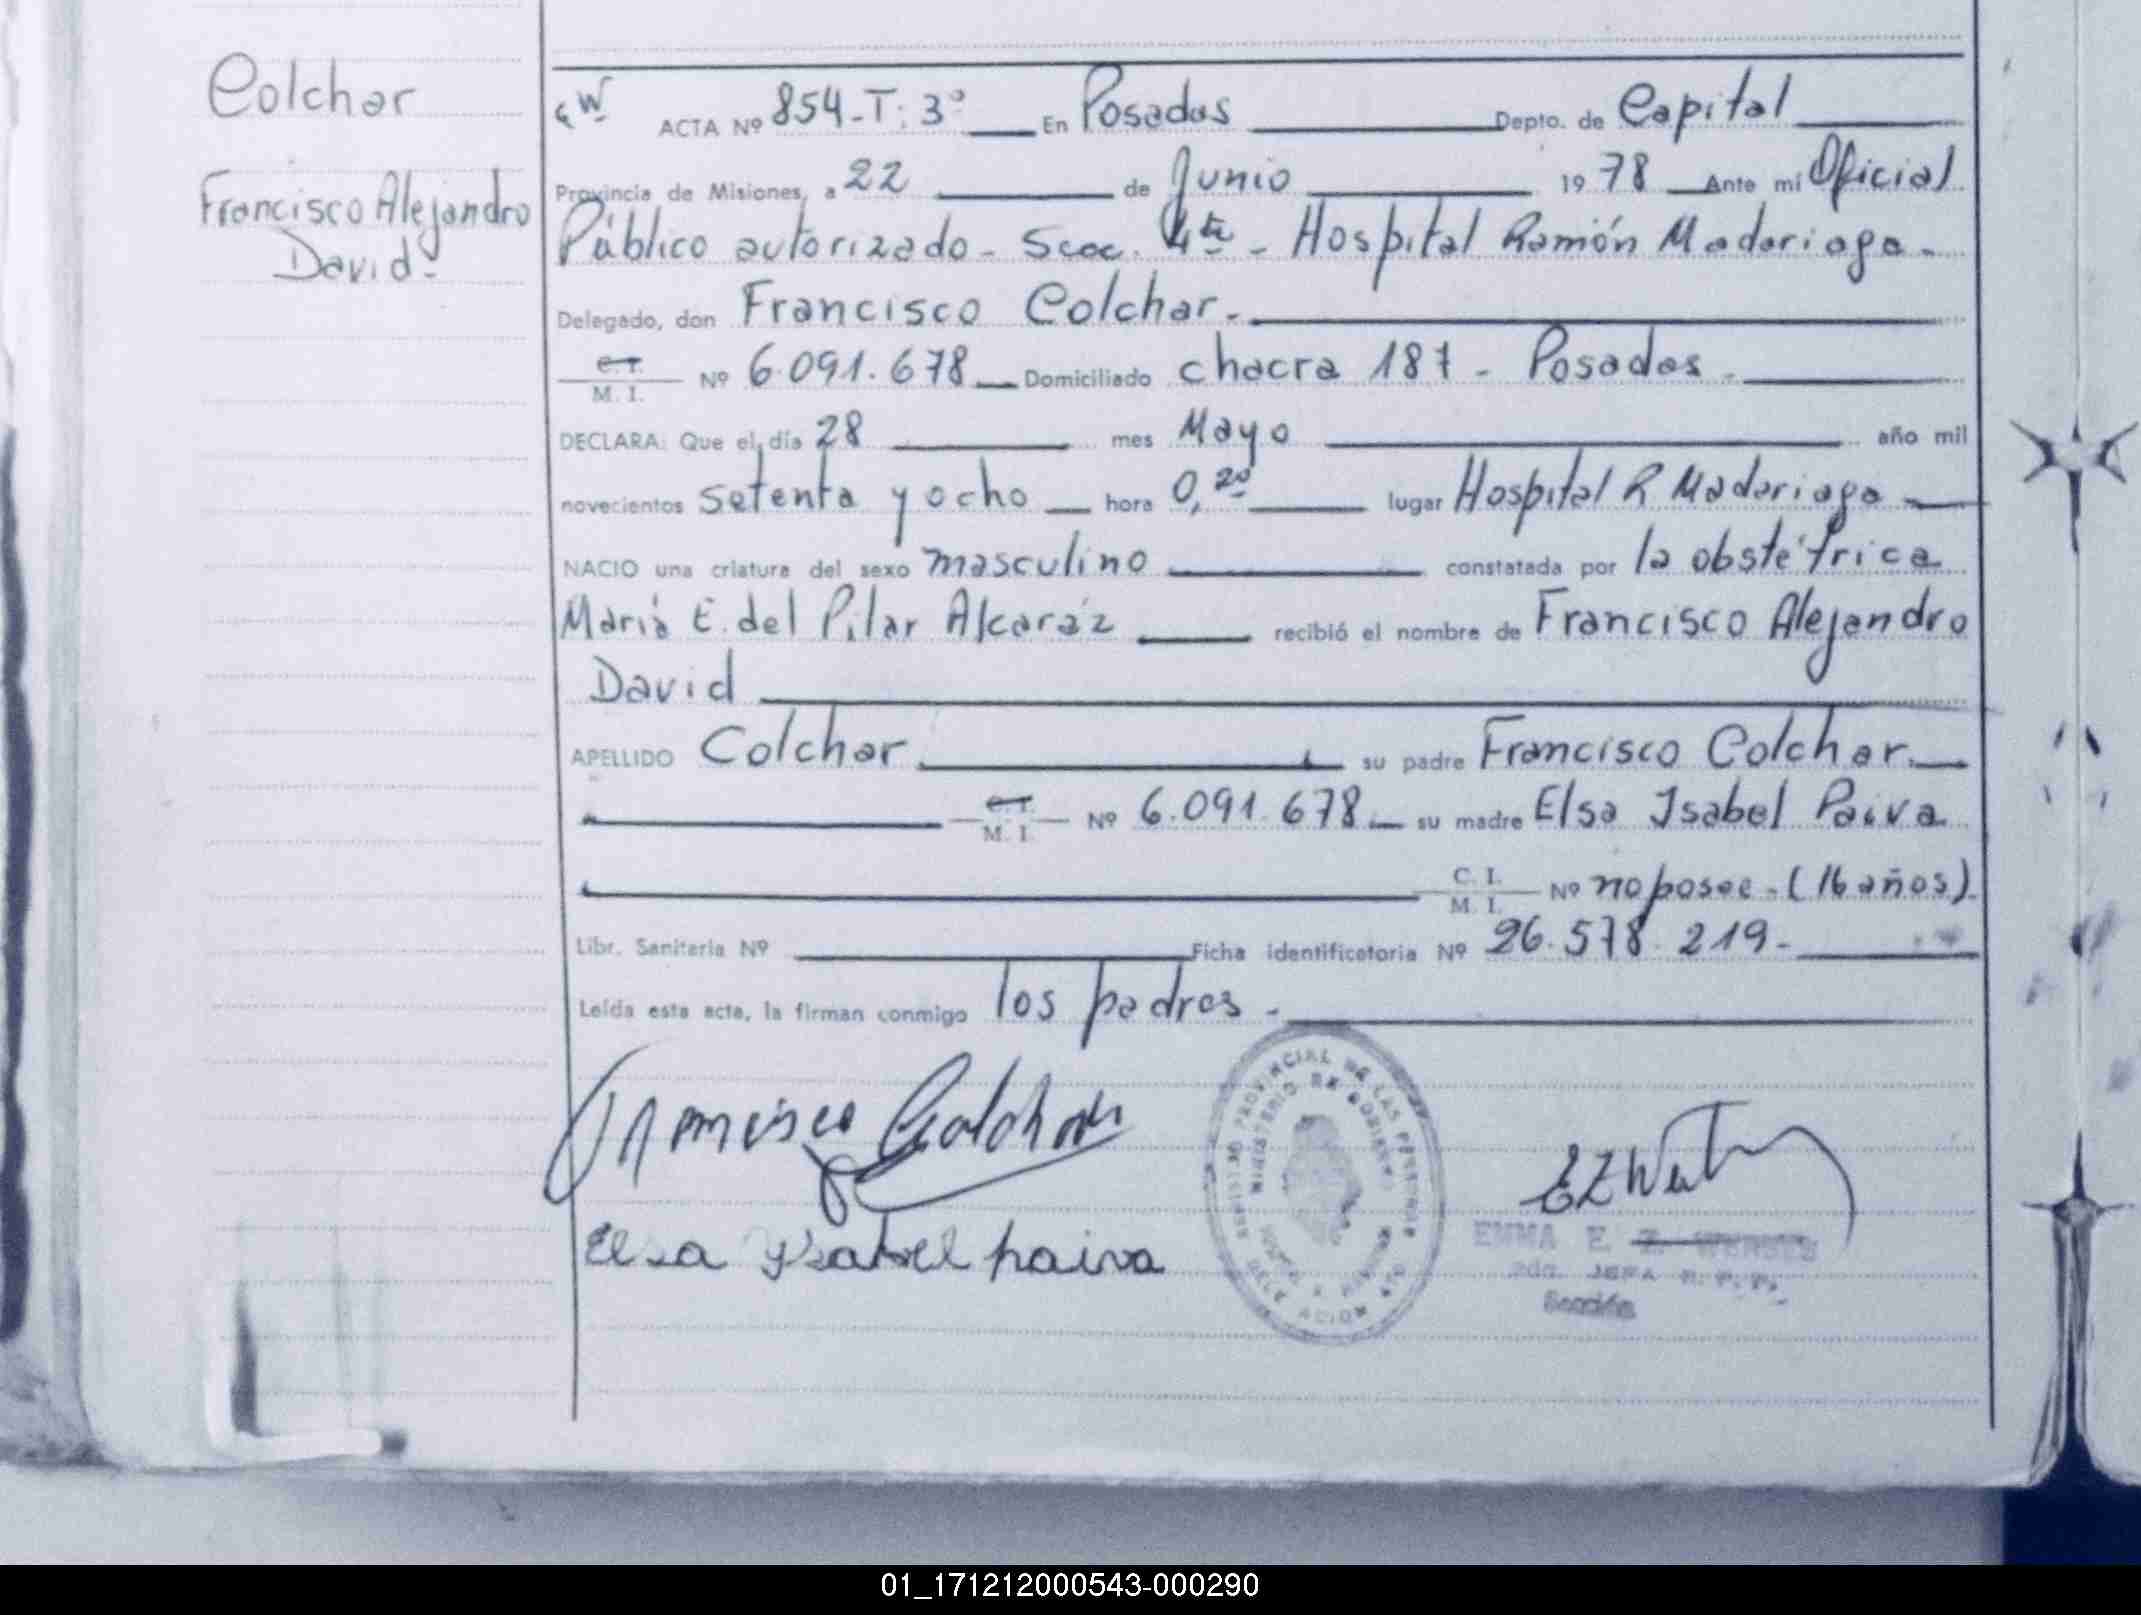 Colchar
Francisco Alejandro
David-
ACTA Nº 854-T: 3º En Posadas Depto. de Capital
Provincia de Misiones, a 22 de Junio 1978 Ante mí Oficial
Público autorizado - Secc. 4ta - Hospital Ramón Madariaga -
Delegado, don Francisco Colchar.
C.I. M. I. Nº 6.091.678 Domiciliado chacra 187 - Posadas -
DECLARA: Que el día 28 mes Mayo año mil
novecientos setenta y ocho hora 0,20 lugar Hospital R Madariaga
NACIO una criatura del sexo masculino constatada por la obstétrica
María E. del Pilar Alcaráz recibió el nombre de Francisco Alejandro
David
APELLIDO Colchar su padre Francisco Colchar.
C.I. M. I. Nº 6.091.678 su madre Elsa Isabel Paiva
C. I. M. I. Nº no posee - (16 años)
Libr. Sanitaria Nº Ficha identificatoria Nº 26.578.219 -
Leída esta acta, la firman conmigo los padres -
Francisco Colchar
Elsa Ysabel paiva
REGISTRO PROVINCIAL DE LAS PERSONAS
MINISTERIO DE GOBIERNO
DELEGACION
EMMA E. Z.
JEFA R. P. P.
Sección
01_171212000543-000290